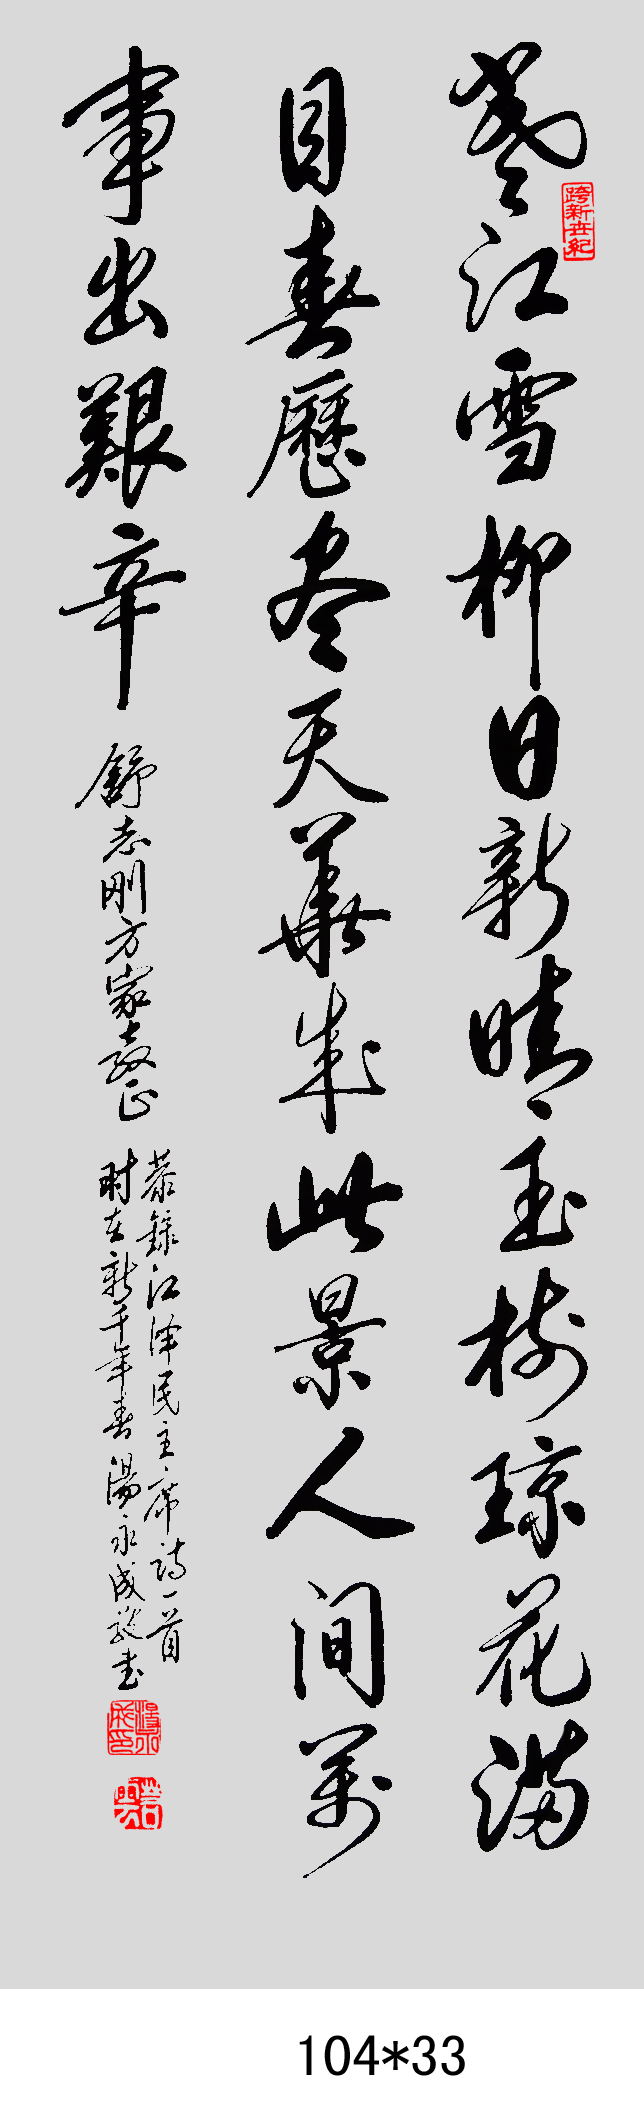 寒江雪柳日新晴玉树琼花满
目春歷尽天華成此景人间萬
事出艱辛
舒志刚方家教正
恭錄江泽民主席诗一首
时在新千年春湯永成敬书
跨新世紀
104*33